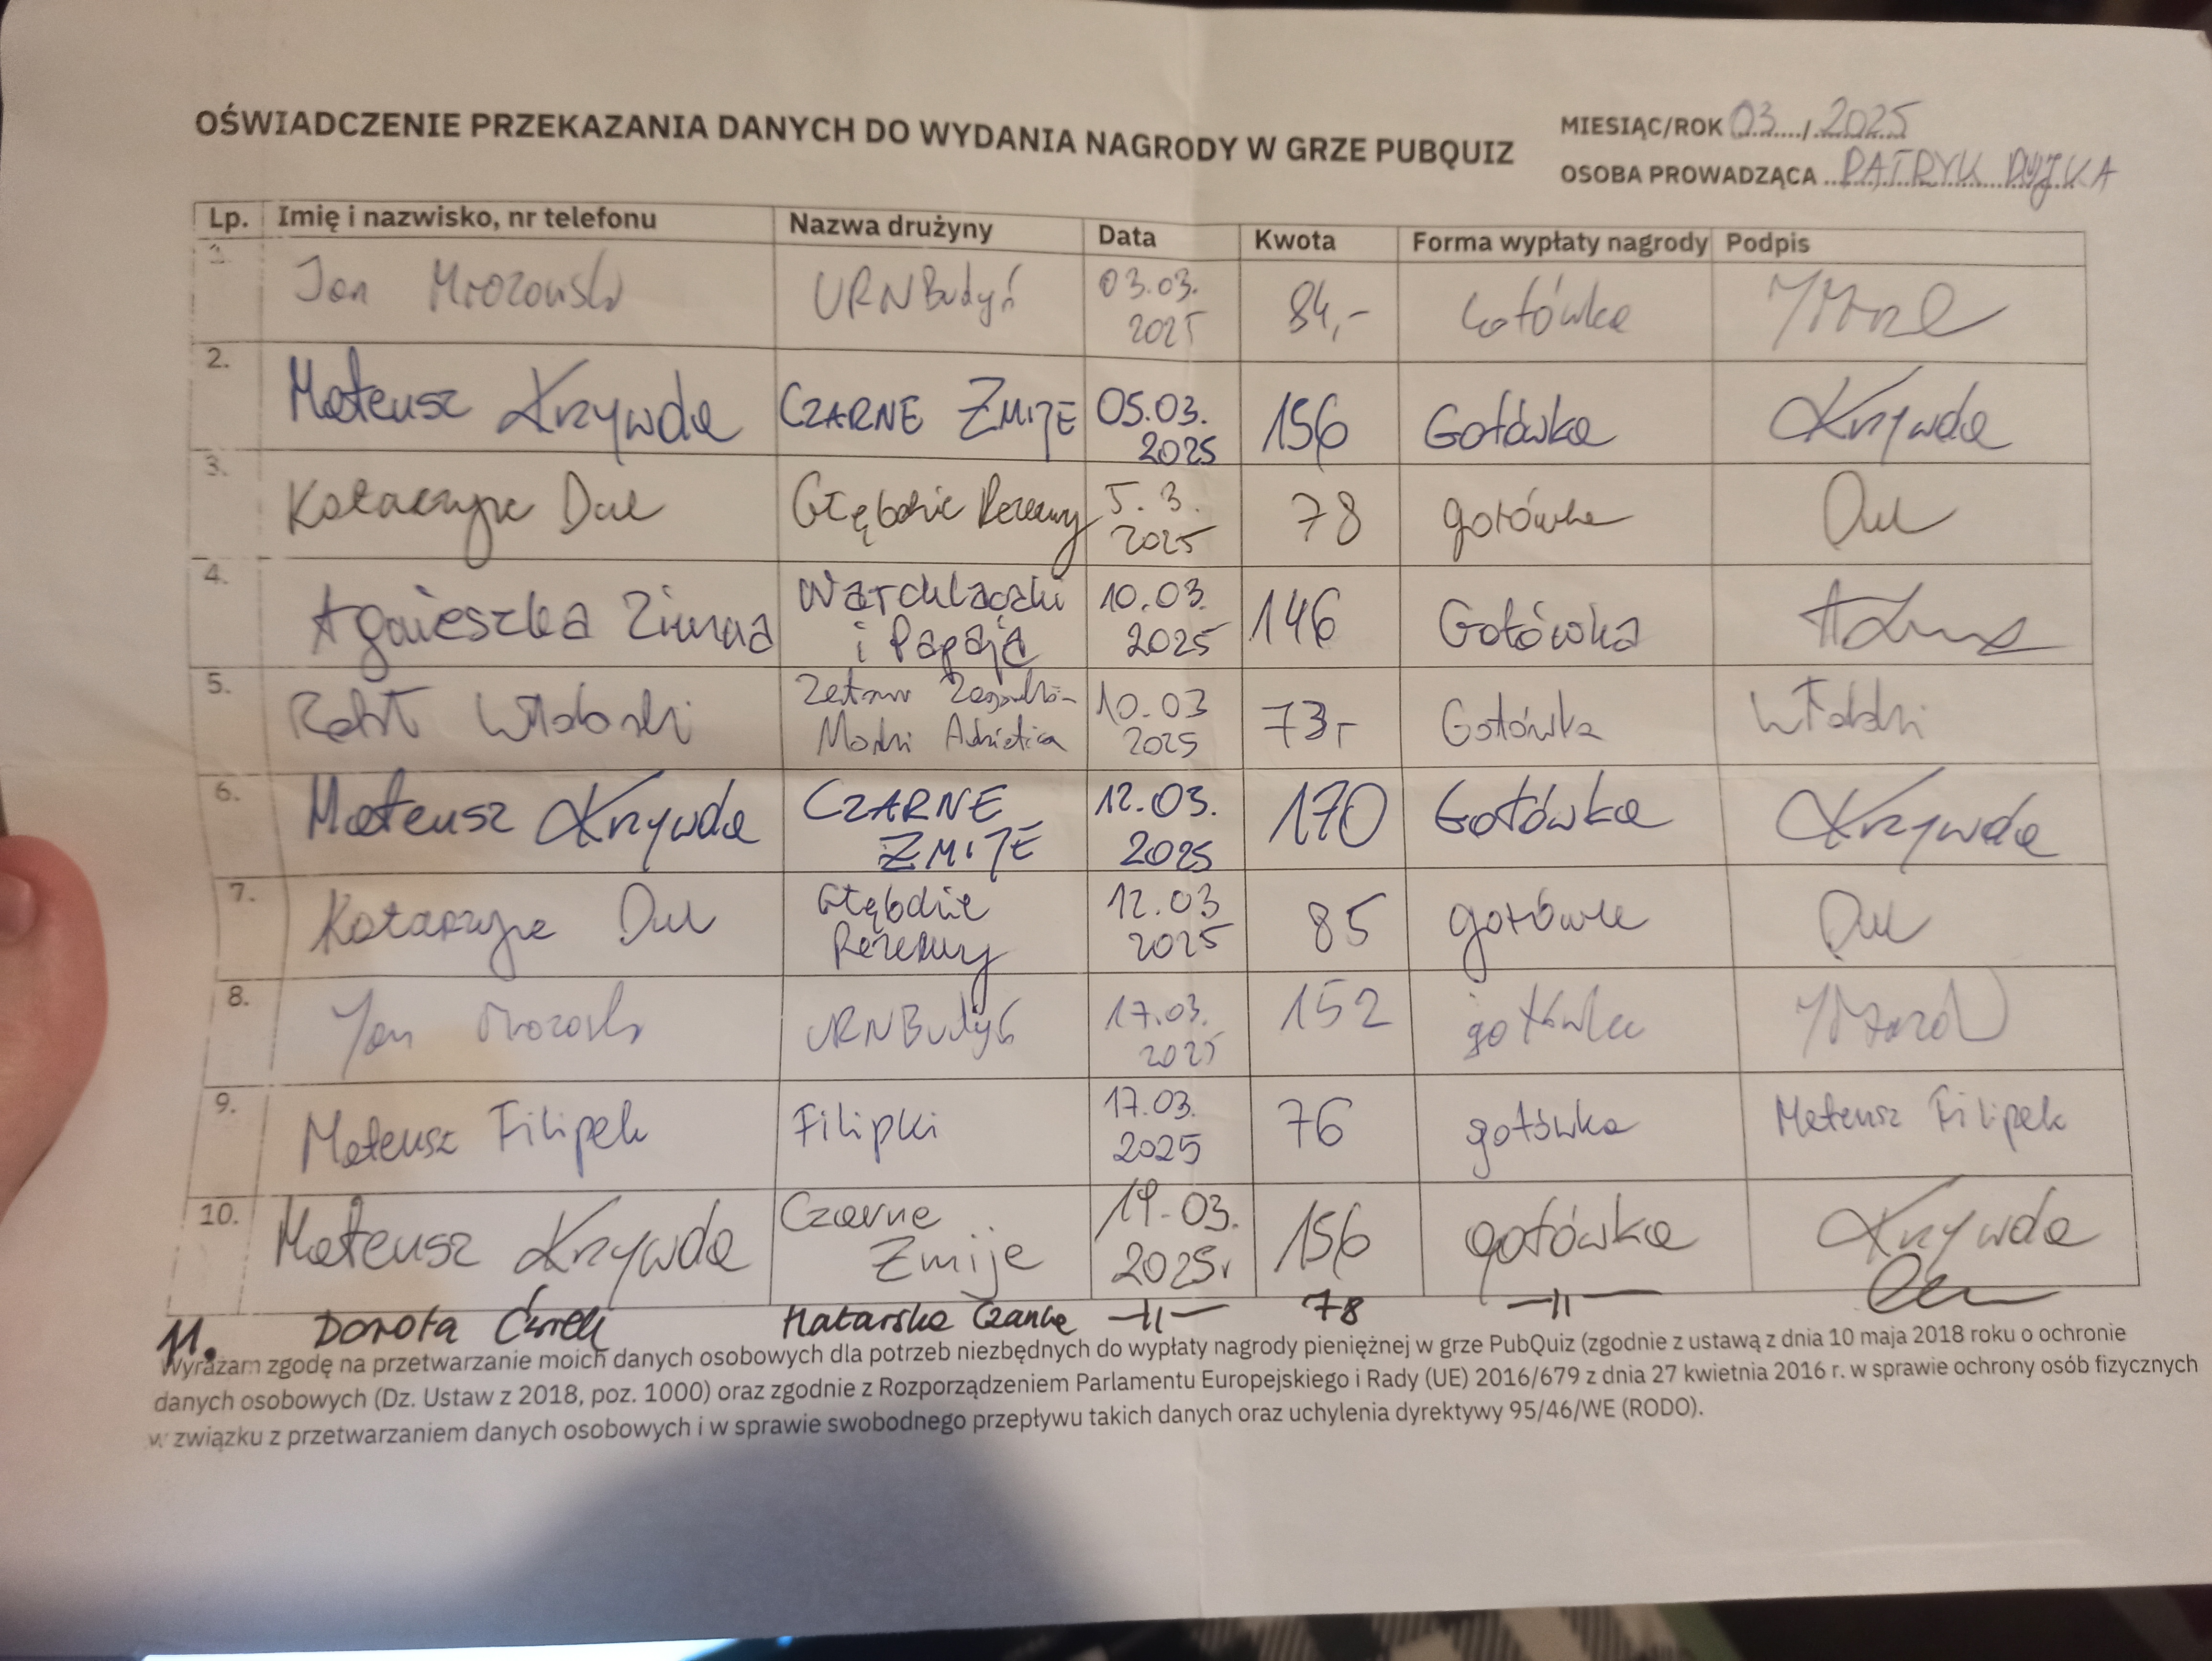 OŚWIADCZENIE PRZEKAZANIA DANYCH DO WYDANIA NAGRODY W GRZE PUBQUIZ
MIESIĄC/ROK 03 / 2025
OSOBA PROWADZĄCA PATRYK
Lp. Imię i nazwisko, nr telefonu Nazwa drużyny Data Kwota Forma wypłaty nagrody Podpis
1. Jan Mrozowski URNBudyń 03.03. 2025 84,- Gotówka
2. Mateusz Krzywda CZARNE ŻMIJE 05.03. 2025 156 Gotówka Krzywda
3. Katarzyna Dul Głębokie Rezerwy 5.3. 2025 78 gotówka Dul
4. Agnieszka Zimna Warchlaczki i Papaja 10.03. 2025 146 Gotówka
5. Robert 10.03 2025 73,- Gotówka
6. Mateusz Krzywda CZARNE ŻMIJE 12.03. 2025 170 Gotówka Krzywda
7. Katarzyna Dul Głębokie Rezerwy 12.03 2025 85 gotówka Dul
8. Jan Mrozowski URNBudyń 17.03. 2025 152 gotówka
9. Mateusz Filipek Filipki 17.03. 2025 76 gotówka Mateusz Filipek
10. Mateusz Krzywda Czarne Żmije 19.03. 2025r 156 gotówka Krzywda
11. Dorota -||- 78 -||-
Wyrażam zgodę na przetwarzanie moich danych osobowych dla potrzeb niezbędnych do wypłaty nagrody pieniężnej w grze PubQuiz (zgodnie z ustawą z dnia 10 maja 2018 roku o ochronie
danych osobowych (Dz. Ustaw z 2018, poz. 1000) oraz zgodnie z Rozporządzeniem Parlamentu Europejskiego i Rady (UE) 2016/679 z dnia 27 kwietnia 2016 r. w sprawie ochrony osób fizycznych
w związku z przetwarzaniem danych osobowych i w sprawie swobodnego przepływu takich danych oraz uchylenia dyrektywy 95/46/WE (RODO).